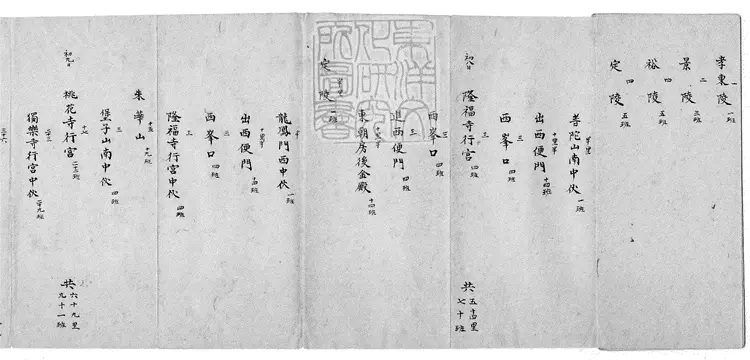 孝東陵 一班
二
景陵 三班
四
裕陵 五班
四
定陵 五班
普陀山南中伙 一班
出西便門 十四班
三
西峯口 四班
三
初八日 隆福寺行宮
共五十四里
七十班
西峯口 四班
三
進西便門 四班
東朝房後金殿 十四班
定陵
龍鳳門西中伙 一班
出西便門 十四班
三
西峯口 四班
三
隆福寺行宮中伙 四班
十五
朱華山 九班
三
堡子山南中伙 四班
十二
初九日 桃花寺行宮 二十三班
二十三
獨樂寺行宮中伙 二十九班
共六十九里
九十一班
二十六
東洋文化研究所圖書